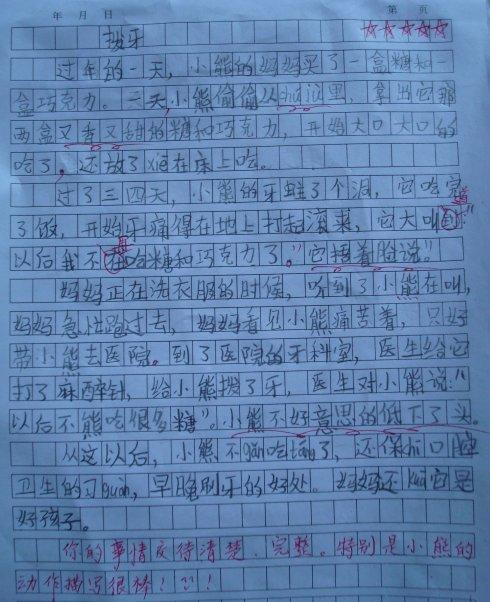 年 月 日 第 页
拨牙
过年的一天，小熊的妈妈买了一盒糖和一
盒巧克力。一天，小熊偷偷从guì里，拿出它那
两盒又香又甜的糖和巧克力，开始大口大口的
吃了，还放了xiē在床上吃。
过了三四天，小熊的牙蛀了个洞，它吃完
了饭，开始牙痛得在地上打起滚来，它大叫道："
以后我不再吃糖和巧克力了。"它捂着脸说。"
妈妈正在洗衣服的时候，听到了小熊在叫，
妈妈急忙跑过去，妈妈看见小熊痛苦着，只好
带小熊去医院。到了医院的牙科室，医生给它
打了麻醉针，给小熊拨了牙，医生对小熊说："
以后不能吃很多糖"。小熊不好意思的低下了头。
从这以后，小熊不gǎn吃táng了，还保chí口腔
卫生的习guàn，早晚刷牙的好处。妈妈还kuā它是
好孩子。
你的事情交待清楚、完整。特别是小熊的
动作描写很棒！